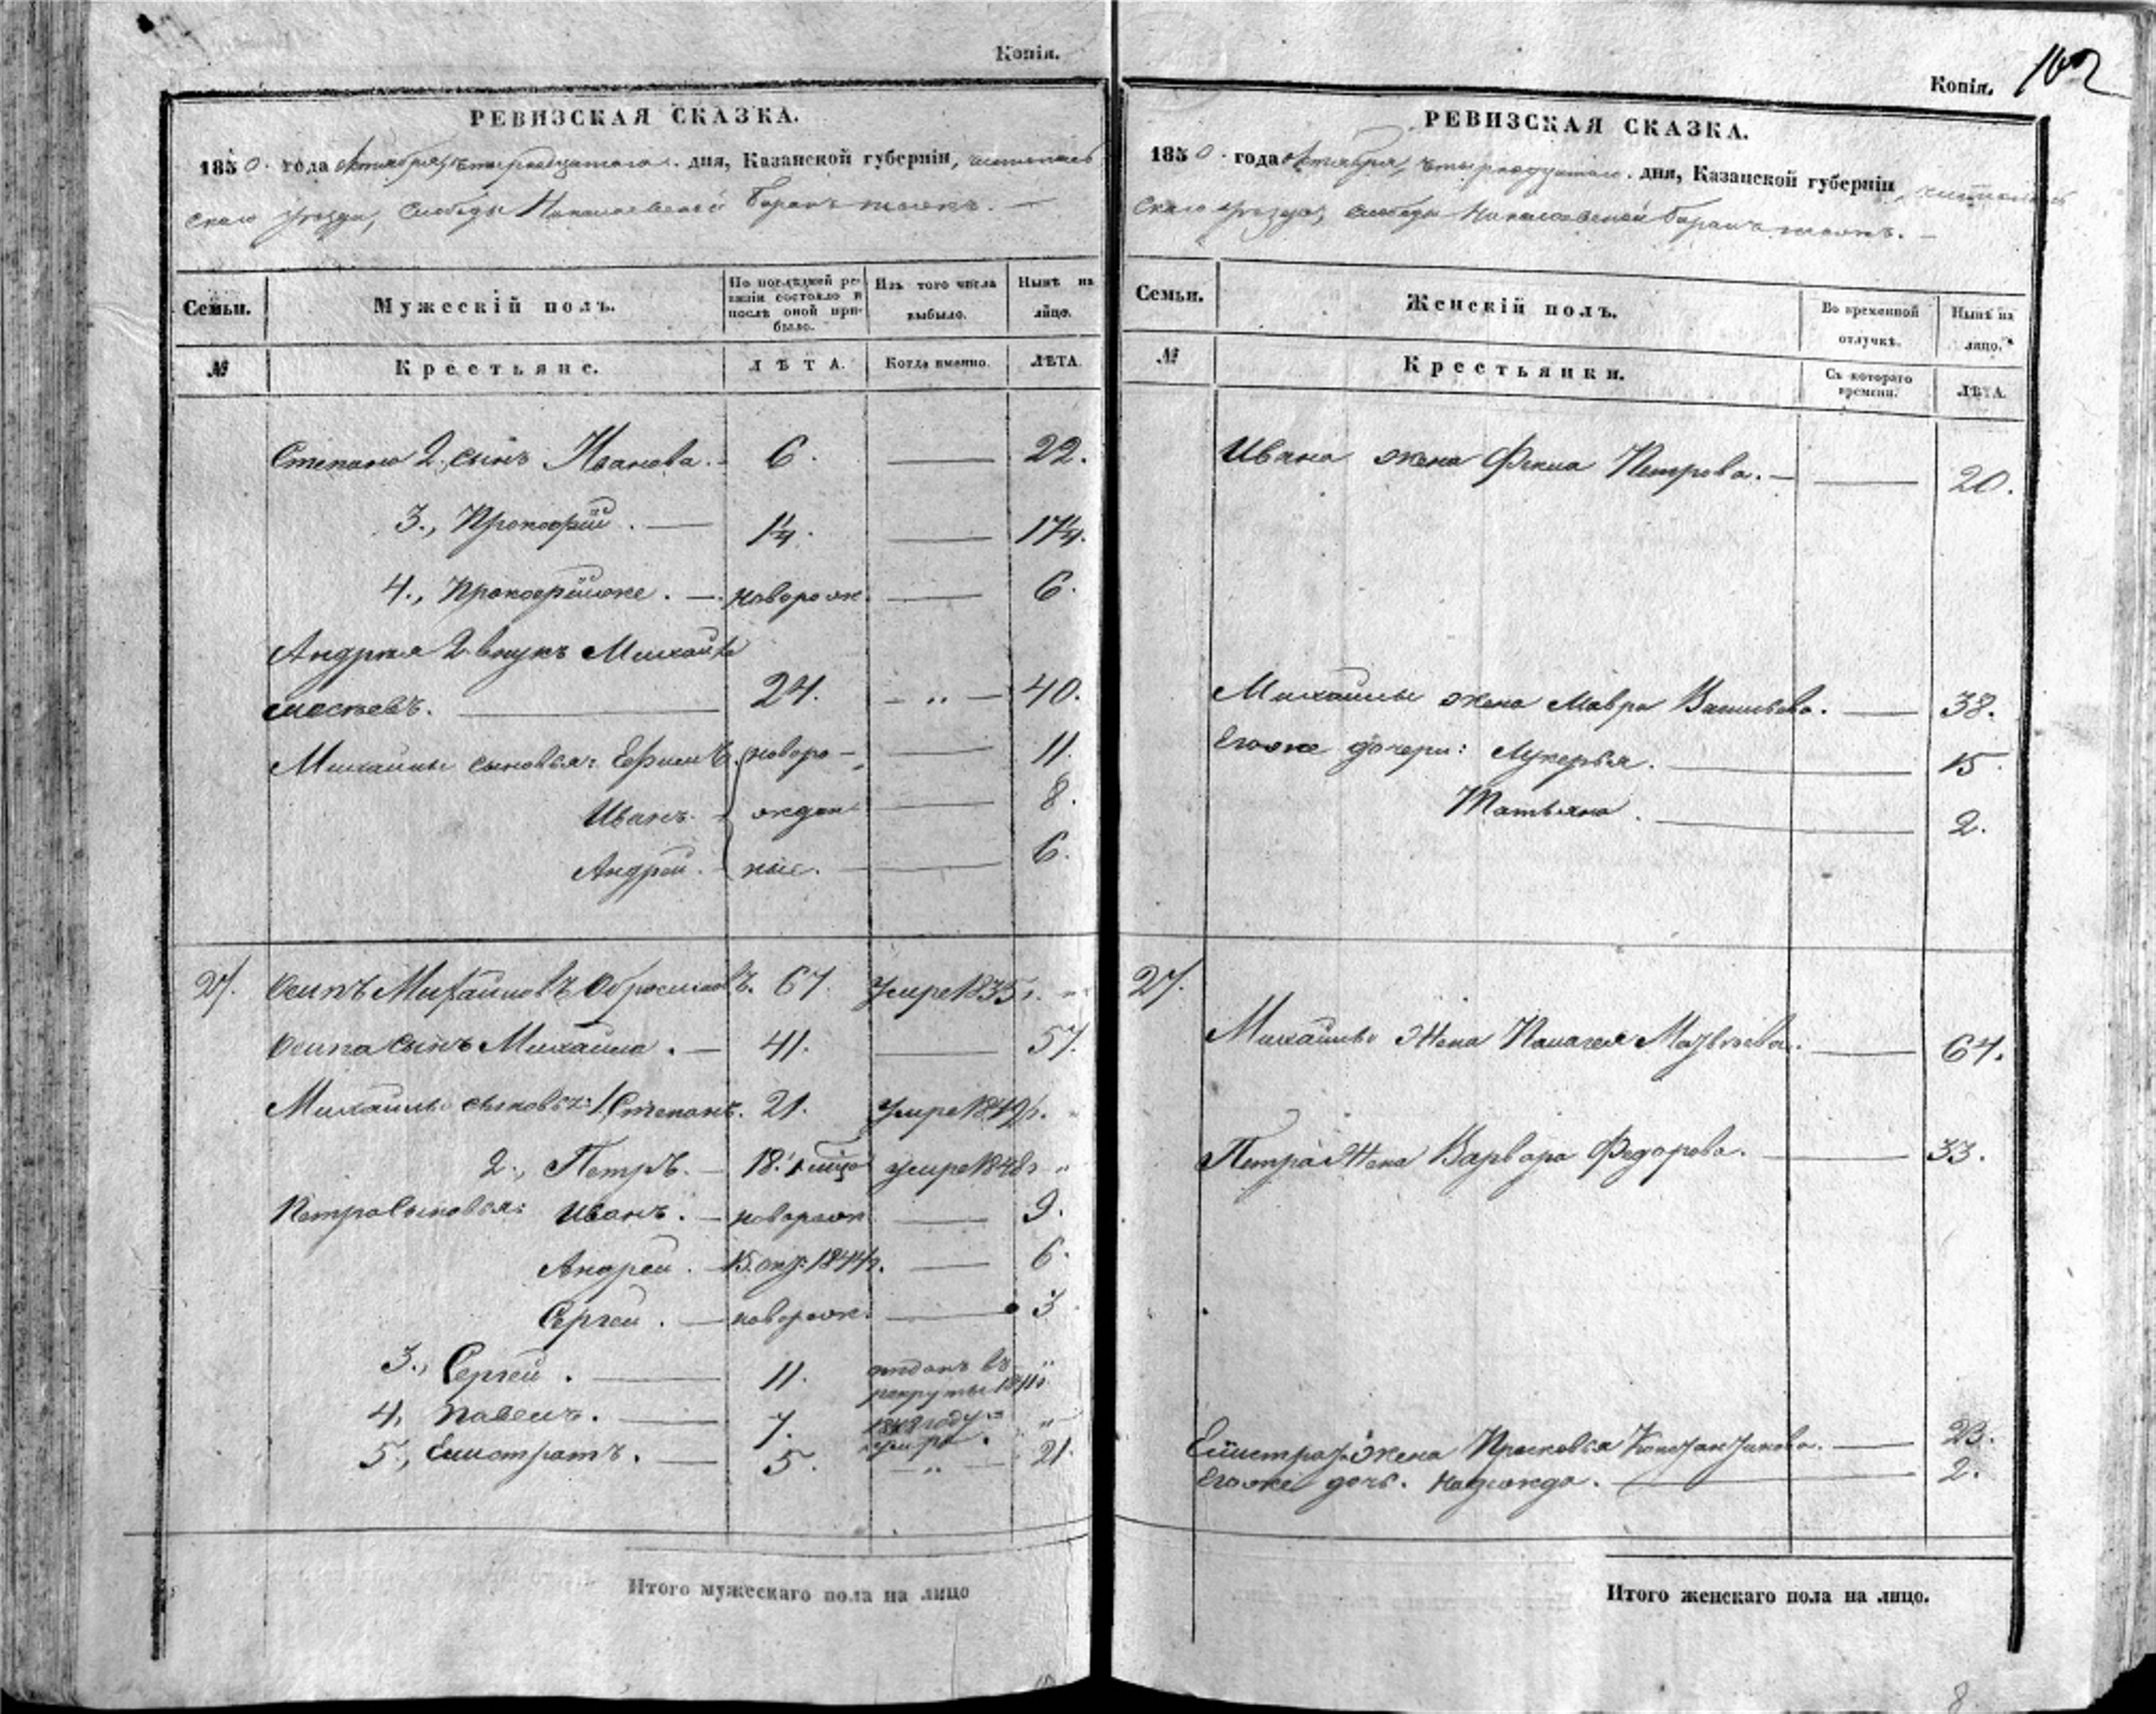 Копія.
РЕВИЗСКАЯ СКАЗКА.
1850 года Октября четырнадцатого дня, Казанской губерніи, чистополь
скаго уѣзда, слободы Николаевской Баранъ тожъ.
Семьи.
Мужескій полъ.
По послѣдней ре-
визіи состояло и
послѣ оной при-
было.
Изъ того числа
выбыло.
Нынѣ на
лицо.
№
Крестьяне.
ЛѢТА.
Когда именно.
ЛѢТА.
Степана 2. сынъ Иванъ 6. 22.
3., Прокофій. 1¼. 17¼.
4., Прокофій же. новорож. 6.
Андрея 2 внукъ Михайла
24. 40.
Михайлы сыновья: Ефимъ новоро- 11.
Иванъ. жден 8.
Андрей. ные. 6.
27. Осипъ Михайловъ 67. Умре 1835 г. "
Осипа сынъ Михайла. 41. 57.
Михайлы сыновья: 1. Степанъ. 21. Умре 1849 г. "
2., Петръ. 18. умре 1848 г "
Петра сыновья: Иванъ. новорож 9.
Андрей. 1844 г. 6.
Сергей. новорож. 3
3., Сергей. 11. отданъ въ "
рекруты
4, Павелъ. 7. 1848 году "
умре.
5., Евстратъ. 5. " 21.
Итого мужескаго пола на лицо
Копія. 102
РЕВИЗСКАЯ СКАЗКА.
1850 года Октября, четырнадцатого дня, Казанской губерніи, чистополь
скаго уѣзда, слободы Николаевской Баранъ тожъ.
Семьи.
Женскій полъ.
Во временной
отлучкѣ.
Нынѣ на
лицо.
№
Крестьянки.
Съ котораго
времени.
ЛѢТА.
Ивана жена Фекла Петрова. 20.
Михайлы жена Мавра Васильева. 38.
Егоже дочери: Лукерья. 15.
Татьяна. 2.
27.
Михайлы жена Палагея Матвѣева. 64.
Петра жена Варвара Федорова. 33.
Евстрата жена Прасковья Константинова. 23.
Егоже дочь. Надежда. 2.
Итого женскаго пола на лицо.
8